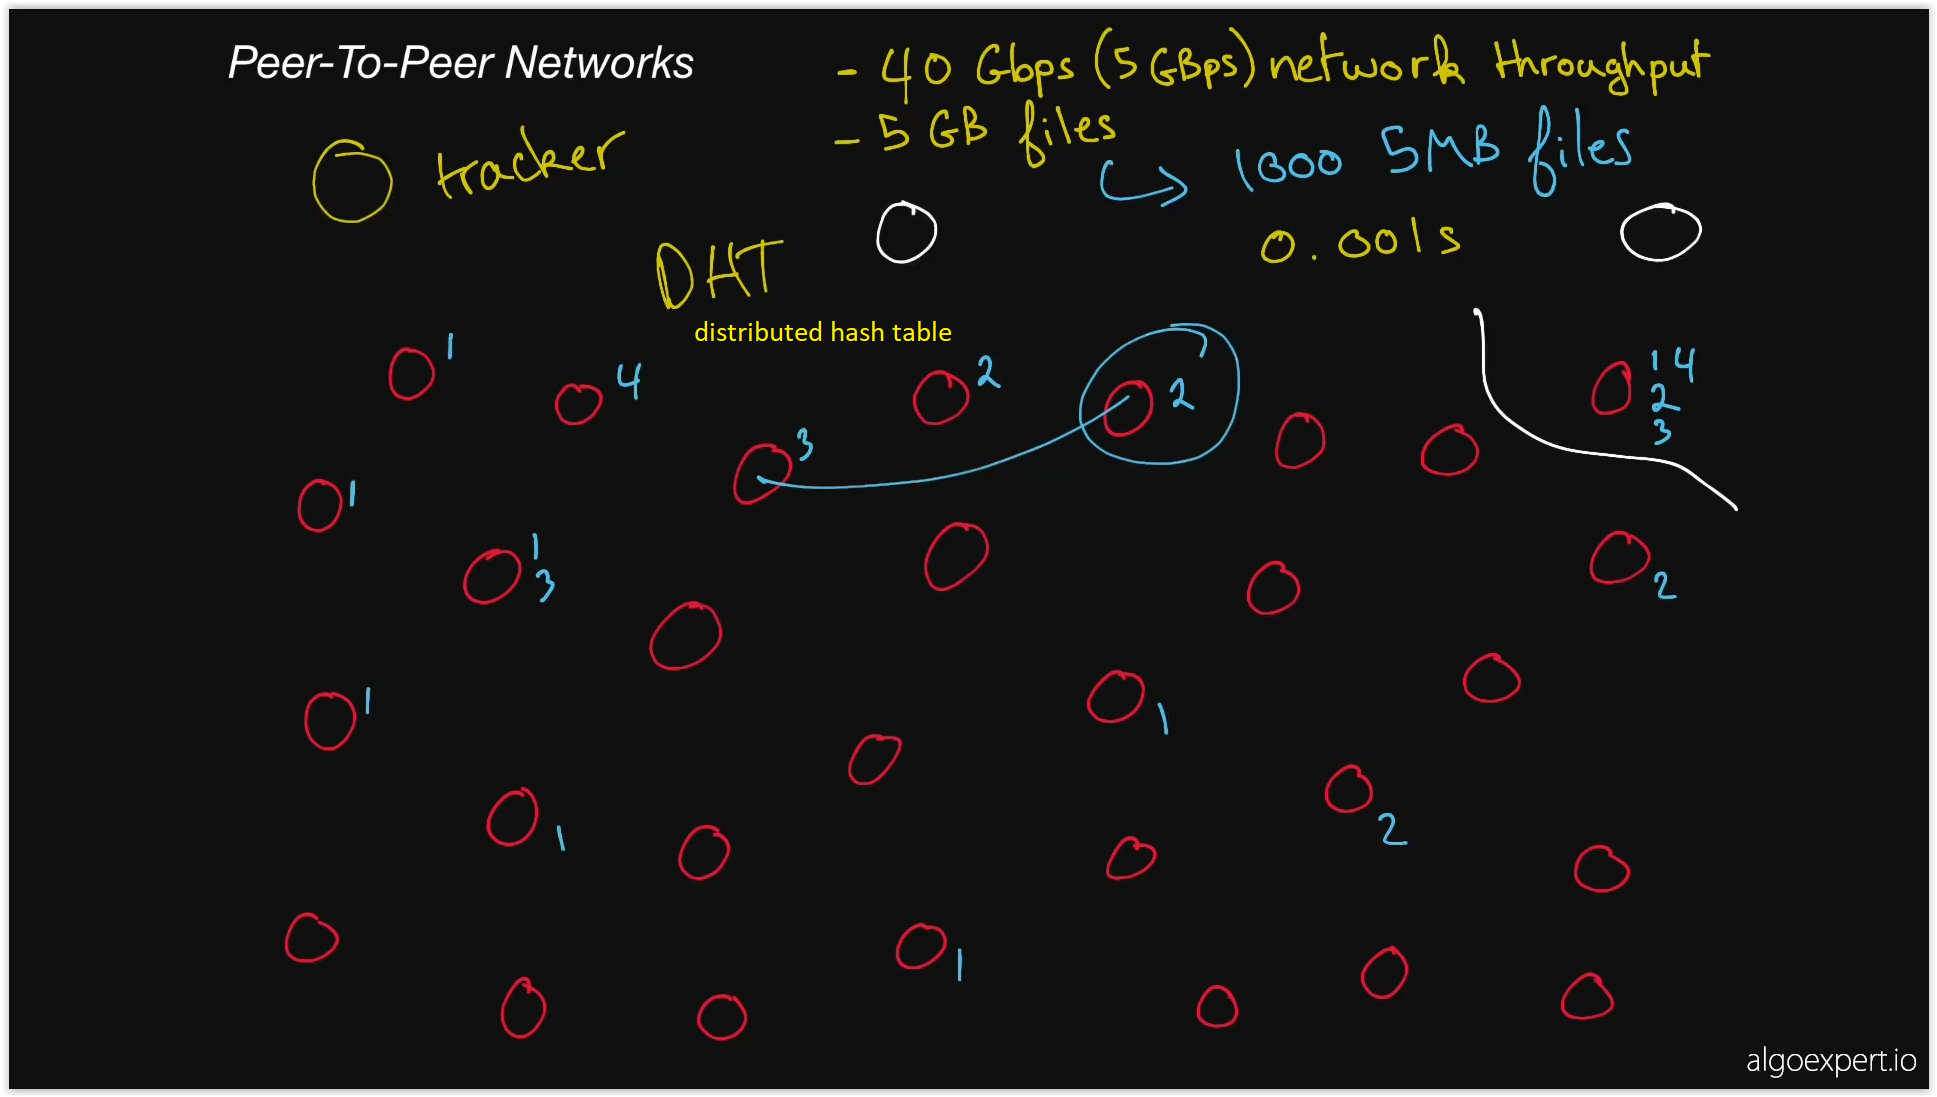 Peer-To-Peer Networks
- 40 Gbps (5 GBps) network throughput
- 5 GB files
1000 5MB files
tracker
0.001s
DHT
distributed hash table
1
4
2
2
1 4
2
3
3
1
1
3
2
1
1
1
2
1
algoexpert.io